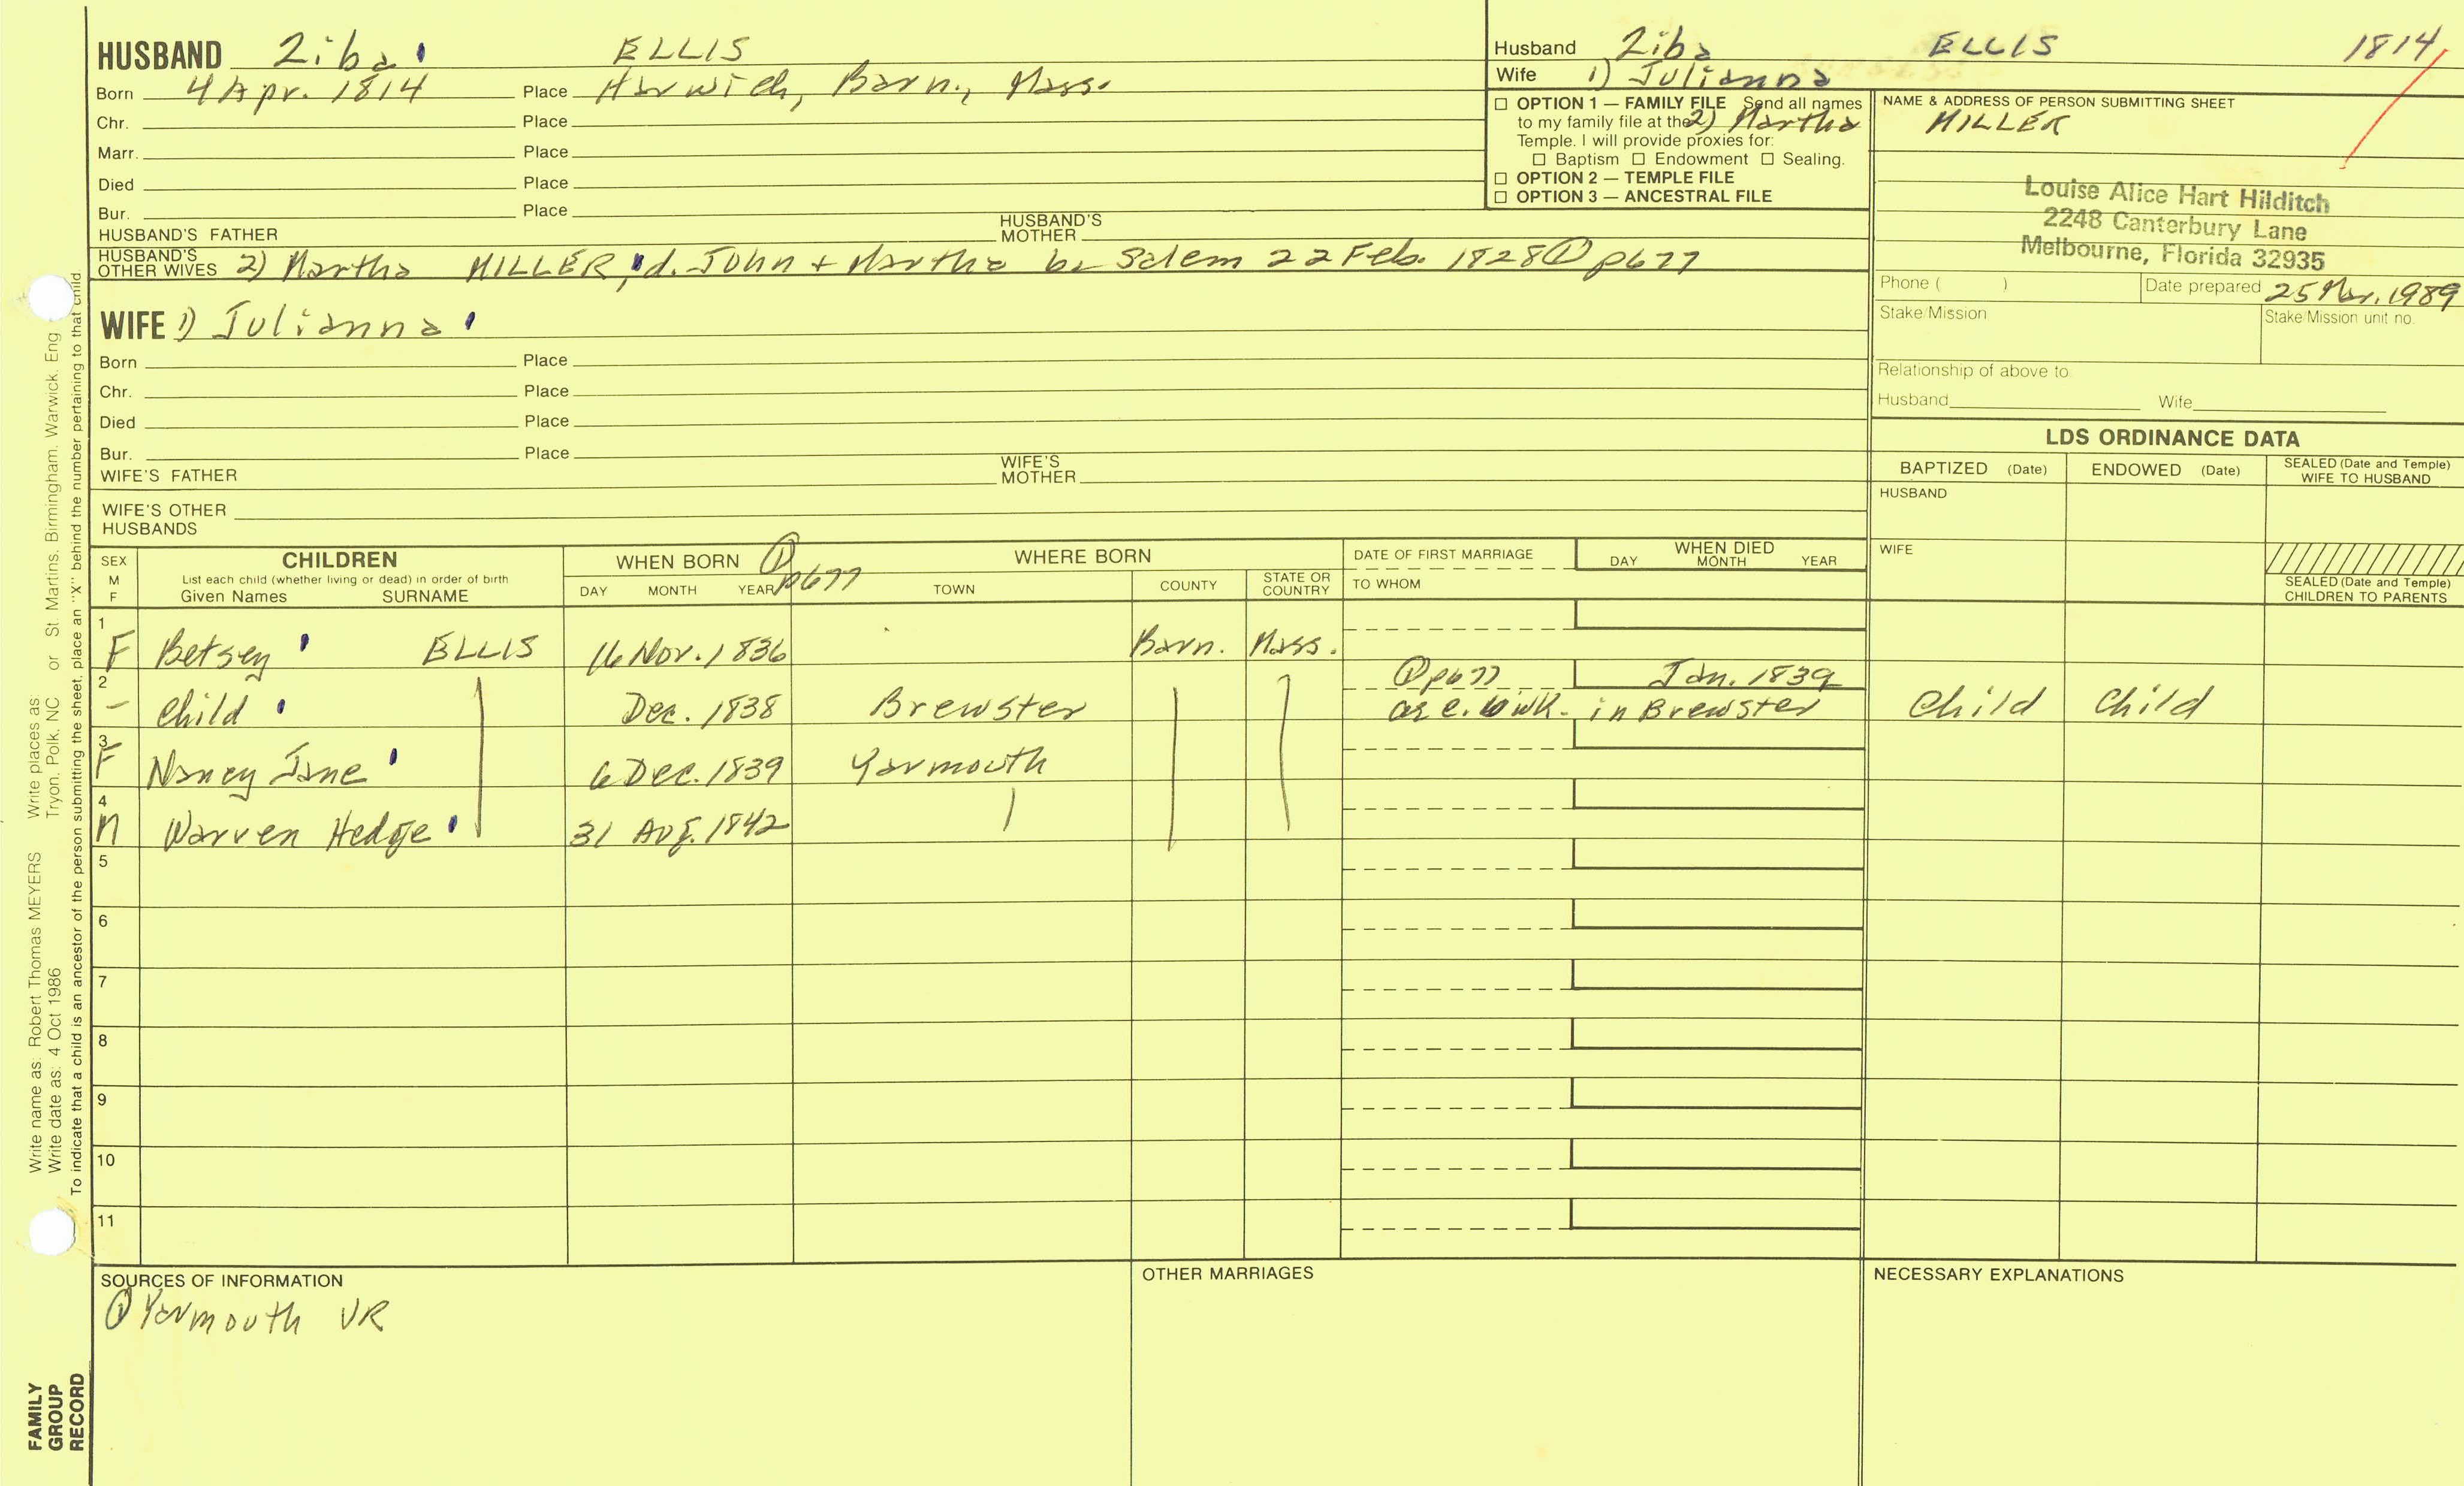 HUSBAND Ziba ELLIS
Born 4 Apr. 1814 Place Harwich, Barn., Mass.
Chr. Place
Marr. Place
Died Place
Bur. Place
HUSBAND'S FATHER HUSBAND'S MOTHER
HUSBAND'S OTHER WIVES 2) Martha MILLER, d. John + Martha b. Salem 22 Feb. 1828 ① p677
WIFE 1) Julianna
Born Place
Chr. Place
Died Place
Bur. Place
WIFE'S FATHER WIFE'S MOTHER
WIFE'S OTHER HUSBANDS
Husband Ziba ELLIS 1814
Wife 1) Julianna
2) Martha MILLER
☐ OPTION 1 — FAMILY FILE Send all names
to my family file at the
Temple. I will provide proxies for:
☐ Baptism ☐ Endowment ☐ Sealing.
☐ OPTION 2 — TEMPLE FILE
☐ OPTION 3 — ANCESTRAL FILE
NAME & ADDRESS OF PERSON SUBMITTING SHEET
Louise Alice Hart Hilditch
2248 Canterbury Lane
Melbourne, Florida 32935
Phone ( ) Date prepared 25 Mar. 1989
Stake/Mission Stake/Mission unit no.
Relationship of above to
Husband Wife
LDS ORDINANCE DATA
BAPTIZED (Date) ENDOWED (Date) SEALED (Date and Temple) WIFE TO HUSBAND
HUSBAND
WIFE
SEALED (Date and Temple) CHILDREN TO PARENTS
SEX M F CHILDREN
List each child (whether living or dead) in order of birth
Given Names SURNAME
WHEN BORN ① p677
DAY MONTH YEAR
WHERE BORN
TOWN COUNTY STATE OR COUNTRY
DATE OF FIRST MARRIAGE
TO WHOM
WHEN DIED
DAY MONTH YEAR
1 F Betsey ELLIS 16 Nov. 1836 Barn. Mass.
2 – Child Dec. 1838 Brewster ① p677 Jan. 1839
in Brewster Child Child
3 F Nancy Jane 6 Dec. 1839 Yarmouth
4 M Warren Hedge 31 Aug. 1842
5
6
7
8
9
10
11
SOURCES OF INFORMATION
① Yarmouth VR
OTHER MARRIAGES
NECESSARY EXPLANATIONS
Write name as: Robert Thomas MEYERS Write places as:
Write date as: 4 Oct 1986 Tryon, Polk, NC or St. Martins, Birmingham, Warwick, Eng
To indicate that a child is an ancestor of the person submitting the sheet, place an "X" behind the number pertaining to that child.
FAMILY
GROUP
RECORD